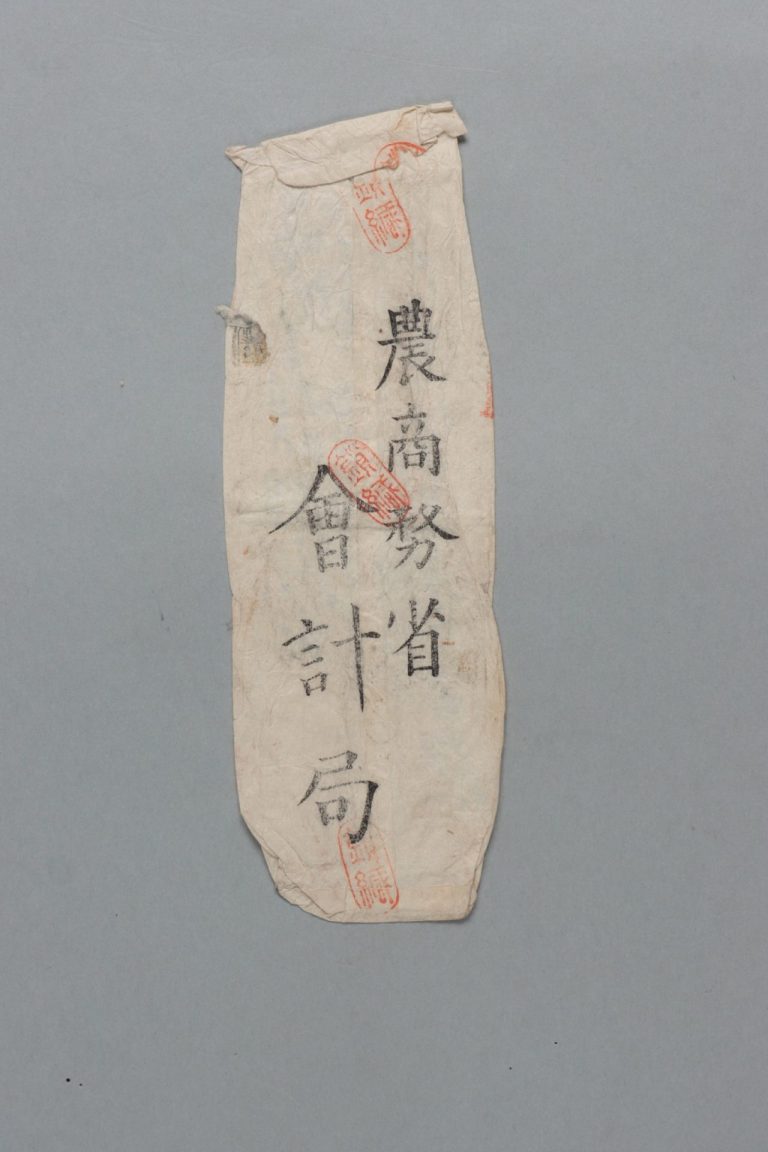 農商務省
會計局